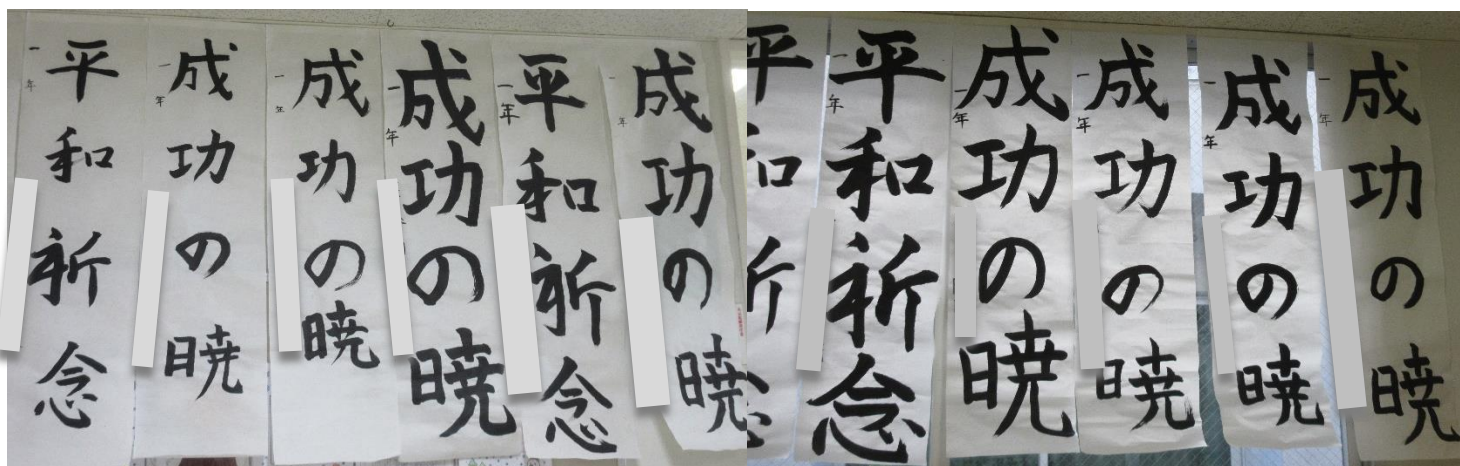 平和祈念
一年
成功の暁
一年
成功の暁
一年
成功の暁
一年
平和祈念
一年
成功の暁
一年
平和祈念
平和祈念
一年
成功の暁
一年
成功の暁
一年
成功の暁
一年
成功の暁
一年